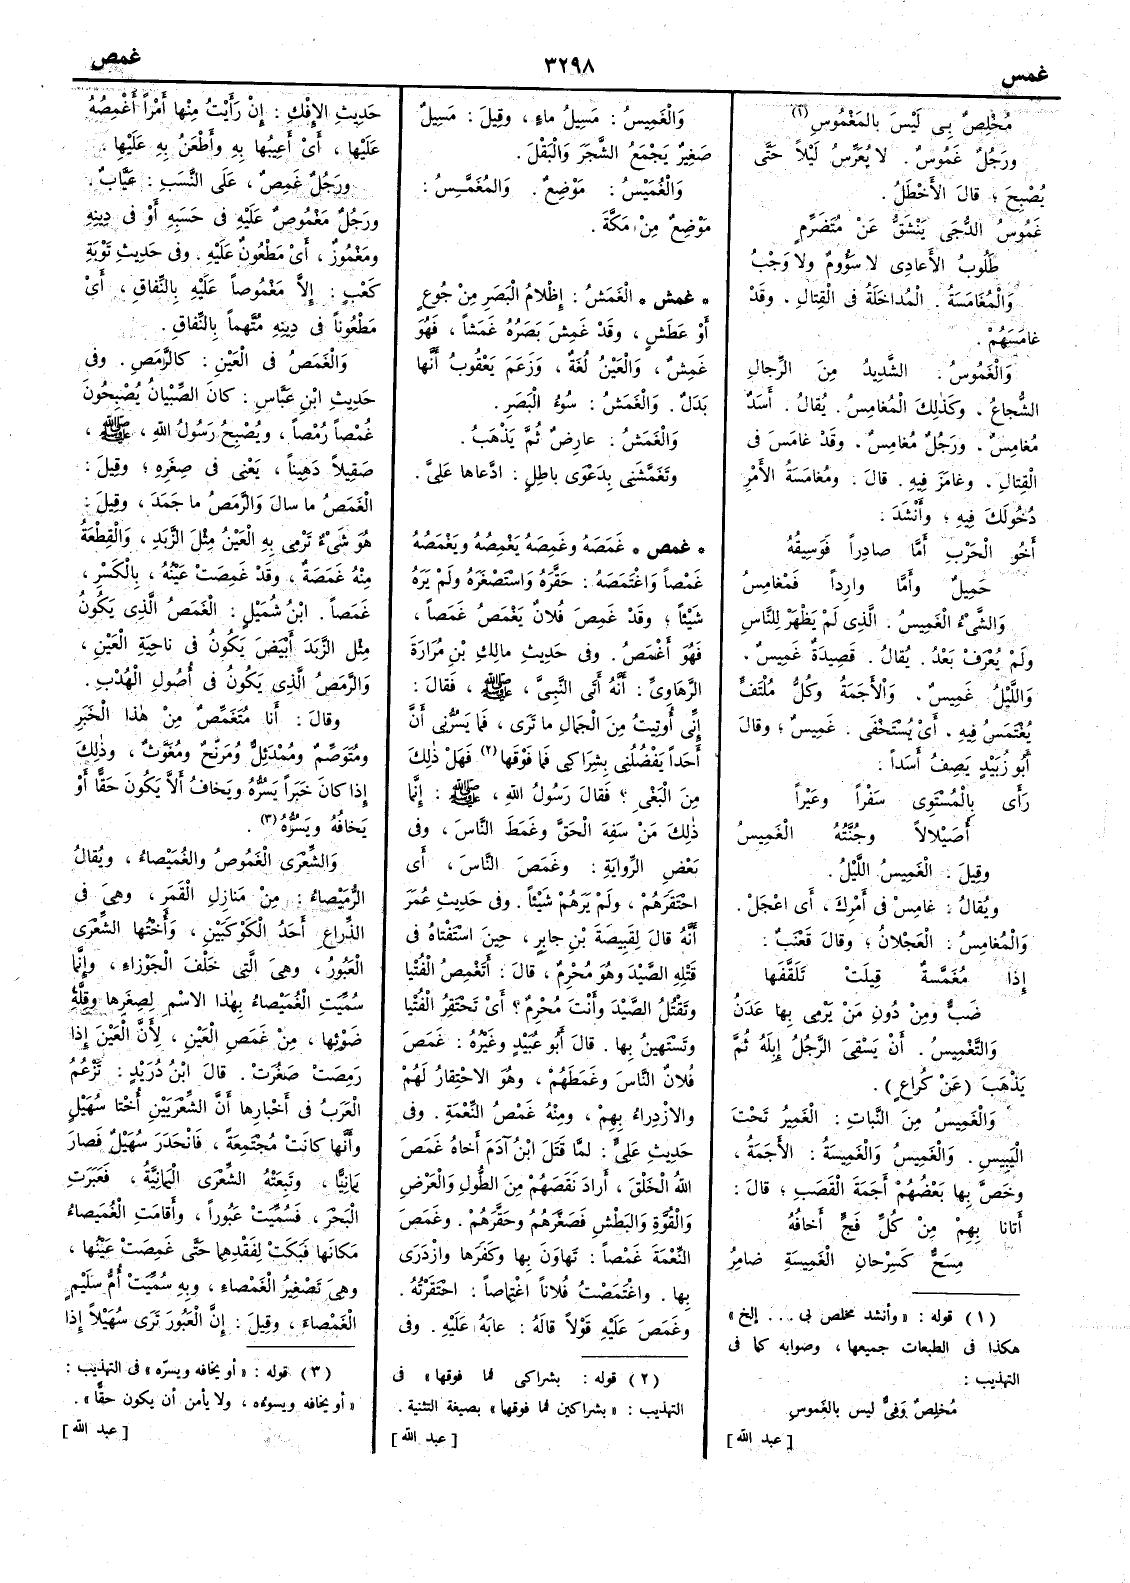 غمس
٣٢٩٨
غمص
مُخْلِصٌ بِى لَيْسَ بالمَغْمُوسِ(١)
ورَجُلٌ غَمُوسٌ . لا يُعَرِّسُ لَيْلاً حَتَّى
يُصْبِحَ ؛ قالَ الأَخْطَلُ .
غَمُوسُ الدُّجَى يَنْشَقُّ عَنْ مُتَضَرِّمٍ
طَلُوبُ الأَعادِى لا سَؤُومٌ ولا وَجْبُ
والْمُغامَسَةُ . الْمُداخَلَةُ فى القِتالِ . وقَدْ
غامَسَهُمْ .
وَالْغَمُوسُ : الشَّدِيدُ مِنَ الرِّجالِ
الشُّجاعُ . وكَذٰلِكَ الْمُغامِسُ . يُقالُ . أَسَدٌ
مُغامِسٌ . ورَجُلٌ مُغامِسٌ . وقَدْ غامَسَ فى
الْقِتالِ . وغامَزَ فِيهِ . قالَ : ومُغامَسَةُ الأَمْرِ
دُخُولُكَ فِيهِ ؛ وأَنْشَدَ :
أَخُو الْحَرْبِ أَمَّا صادِراً فَوَسِيقُهُ
حَمِيلٌ وأَمَّا وارِداً فَمُغامِسُ
وَالشَّىْءُ الْغَمِيسُ . الَّذِى لَمْ يَظْهَرْ لِلنَّاسِ
ولَمْ يُعْرَفْ بَعْدُ . يُقالُ . قَصِيدَةٌ غَمِيسٌ .
وَاللَّيْلُ غَمِيسٌ . وَالأَجَمَةُ وكُلُّ مُلْتَفٍّ
يُغْتَمَسُ فِيهِ . أَىْ يُسْتَخْفَى . غَمِيسٌ ؛ وقالَ
أَبُو زُبَيْدٍ يَصِفُ أَسَداً :
رَأَى بِالْمُسْتَوِى سَفْراً وعَيْراً
أُصَيْلالاً وجُنَّتُهُ الْغَمِيسُ
وقِيلَ . الْغَمِيسُ اللَّيْلُ .
ويُقالُ : غامِسْ فى أَمْرِكَ ، أَىِ اعْجَلْ .
وَالْمُغامِسُ : الْعَجْلانُ ؛ وقالَ قَعْنَبٌ :
إِذا مُغَمَّسَةٌ قِيلَتْ تَلَقَّفَها
ضَبٌّ ومِنْ دُونِ مَنْ يَرْمِى بِها عَدَنُ
وَالتَّغْمِيسُ . أَنْ يَسْقِىَ الرَّجُلُ إِبِلَهُ ثُمَّ
يَذْهَبَ (عَنْ كُراعٍ) .
وَالْغَمِيسُ مِنَ النَّباتِ : الْغَمِيرُ تَحْتَ
الْيَبِيسِ . وَالْغَمِيسُ وَالْغَمِيسَةُ : الأَجَمَةُ ،
وخَصَّ بِها بَعْضُهُمْ أَجَمَةَ الْقَصَبِ ؛ قالَ :
أَتانا بِهِمْ مِنْ كُلِّ فَجٍّ أَخافُهُ
مِسَحٌّ كَسِرْحانِ الْغَمِيسَةِ ضامِرُ
(١) قوله : «وأنشد مخلص بى ... إلخ»
هكذا فى الطبعات جميعها ، وصوابه كما فى
التهذيب :
مُخلِصٌ وَفِىٌّ ليس بالغَموسِ
[ عبد الله ]
وَالْغَمِيسُ : مَسِيلُ ماءٍ ، وقِيلَ : مَسِيلٌ
صَغِيرٌ يَجْمَعُ الشَّجَرَ وَالْبَقْلَ .
وَالْغُمَيْسُ : مَوْضِعٌ . وَالمُغَمَّسُ :
مَوْضِعٌ مِنْ مَكَّةَ .
* غمش * الْغَمَشُ : إِظْلامُ الْبَصَرِ مِنْ جُوعٍ
أَوْ عَطَشٍ ، وقَدْ غَمِشَ بَصَرُهُ غَمَشاً ، فَهُوَ
غَمِشٌ ، وَالْعَيْنُ لُغَةٌ ، وَزَعَمَ يَعْقُوبُ أَنَّها
بَدَلٌ . وَالْغَمَشُ : سُوءُ الْبَصَرِ .
وَالْغَمَشُ : عارِضٌ ثُمَّ يَذْهَبُ .
وتَغَمَّشَنِى بِدَعْوَى باطِلٍ : ادَّعاها عَلَىَّ .
* غمص * غَمَصَهُ وغَمِصَهُ يَغْمِصُهُ ويَغْمَصُهُ
غَمْصاً وَاغْتَمَصَهُ : حَقَّرَهُ وَاسْتَصْغَرَهُ ولَمْ يَرَهُ
شَيْئاً ؛ وقَدْ غَمِصَ فُلانٌ يَغْمَصُ غَمَصاً ،
فَهُوَ أَغْمَصُ . وفى حَدِيثِ مالِكِ بْنِ مُرارَةَ
الرَّهاوِىِّ : أَنَّهُ أَتَى النَّبِىَّ ، ﷺ ، فَقالَ :
إِنِّى أُوتِيتُ مِنَ الْجَمالِ ما تَرَى ، فَما يَسُرُّنِى أَنَّ
أَحَداً يَفْضُلُنِى بِشِراكِى فَما فَوْقَها(٢) فَهَلْ ذٰلِكَ
مِنَ الْبَغْىِ ؟ فَقالَ رَسُولُ اللهِ ، ﷺ : إِنَّما
ذٰلِكَ مَنْ سَفِهَ الْحَقَّ وغَمَطَ النَّاسَ ، وفى
بَعْضِ الرِّوايَةِ : وغَمَصَ النَّاسَ ، أَى
احْتَقَرَهُمْ ، ولَمْ يَرَهُمْ شَيْئاً . وفى حَدِيثِ عُمَرَ
أَنَّهُ قالَ لِقَبِيصَةَ بْنِ جابِرٍ ، حِينَ اسْتَفْتاهُ فى
قَتْلِهِ الصَّيْدَ وهُوَ مُحْرِمٌ ، قالَ : أَتَغْمِصُ الْفُتْيا
وتَقْتُلُ الصَّيْدَ وأَنْتَ مُحْرِمٌ ؟ أَىْ تَحْتَقِرُ الْفُتْيا
وتَسْتَهِينُ بِها . قالَ أَبُو عُبَيْدٍ وغَيْرُهُ : غَمَصَ
فُلانٌ النَّاسَ وغَمَطَهُمْ ، وهُوَ الاحْتِقارُ لَهُمْ
والازْدِراءُ بِهِمْ ، ومِنْهُ غَمْصُ النِّعْمَةِ . وفى
حَدِيثِ عَلِىٍّ : لمَّا قَتَلَ ابْنُ آدَمَ أَخاهُ غَمَصَ
اللهُ الْخَلْقَ ، أَرادَ نَقَصَهُمْ مِنَ الطُّولِ وَالْعَرْضِ
وَالْقُوَّةِ وَالبَطْشِ فَصَغَّرَهُمْ وحَقَّرَهُمْ . وغَمَصَ
النِّعْمَةَ غَمْصاً : تَهاوَنَ بِها وكَفَرَها وازْدَرَى
بِها . وَاغْتَمَصْتُ فُلاناً اغْتِماصاً : احْتَقَرْتُهُ .
وغَمَصَ عَلَيْهِ قَوْلاً قالَهُ : عابَهُ عَلَيْهِ . وفى
(٢) قوله : بشراكى فما فوقها» فى
التهذيب : «بشراكين فما فوقها» بصيغة التثنية .
[ عبد الله ]
حَدِيثِ الإِفْكِ : إِنْ رَأَيْتُ مِنْها أَمْراً أَغْمِصُهُ
عَلَيْها ، أَىْ أَعِيبُها بِهِ وأَطْعَنُ بِهِ عَلَيْها .
ورَجُلٌ غَمِصٌ ، عَلَى النَّسَبِ : عَيَّابٌ .
ورَجُلٌ مَغْمُوصٌ عَلَيْهِ فى حَسَبِهِ أَوْ فى دِينِهِ
ومَغْمُوزٌ ، أَىْ مَطْعُونٌ عَلَيْهِ . وفى حَدِيثِ تَوْبَةِ
كَعْبٍ : إِلاَّ مَغْمُوصاً عَلَيْهِ بِالنِّفاقِ ، أَىْ
مَطْعُوناً فى دِينِهِ مُتَّهَماً بِالنِّفاقِ .
وَالْغَمَصُ فى الْعَيْنِ : كالرَّمَصِ . وفى
حَدِيثِ ابْنِ عَبَّاسٍ : كانَ الصِّبْيانُ يُصْبِحُونَ
غُمْصاً رُمْصاً ، ويُصْبِحُ رَسُولُ اللهِ ، ﷺ ،
صَقِيلاً دَهِيناً ، يَعْنِى فى صِغَرِهِ ؛ وقِيلَ :
الْغَمَصُ ما سالَ وَالرَّمَصُ ما جَمَدَ ، وقِيلَ :
هُوَ شَىْءٌ تَرْمِى بِهِ الْعَيْنُ مِثْلُ الزَّبَدِ ، وَالْقِطْعَةُ
مِنْهُ غَمَصَةٌ ، وقَدْ غَمِصَتْ عَيْنُهُ ، بِالْكَسْرِ ،
غَمَصاً . ابْنُ شُمَيْلٍ : الْغَمَصُ الَّذِى يَكُونُ
مِثْلَ الزَّبَدِ أَبْيَضَ يَكُونُ فى ناحِيَةِ الْعَيْنِ ،
وَالرَّمَصُ الَّذِى يَكُونُ فى أُصُولِ الْهُدْبِ .
وقالَ : أَنا مُتَغَمِّصٌ مِنْ هٰذا الْخَبَرِ
ومُتَوَصِّمٌ ومُمْدَئِلٌّ ومُرَنَّحٌ ومُغَوَّثٌ ، وذٰلِكَ
إِذا كانَ خَبَراً يَسُرُّهُ ويَخافُ أَلاَّ يَكُونَ حَقًّا أَوْ
يَخافُهُ ويَسُرُّهُ(٣) .
وَالشِّعْرَى الْغَمُوصُ والغُمَيْصاءُ ، ويُقالُ
الرُّمَيْصاءُ : مِنْ مَنازِلِ الْقَمَرِ ، وهِىَ فى
الذِّراعِ أَحَدُ الْكَوْكَبَيْنِ ، وَأُخْتُها الشِّعْرَى
الْعَبُورُ ، وهِىَ الَّتِى خَلْفَ الْجَوْزاءِ ، وإِنَّما
سُمِّيَتِ الْغُمَيْصاءُ بِهٰذا الاسْمِ لِصِغَرِها وقِلَّةِ
ضَوْئِها ، مِنْ غَمَصِ الْعَيْنِ ، لأَنَّ الْعَيْنَ إِذا
رَمِصَتْ صَغُرَتْ . قالَ ابْنُ دُرَيْدٍ : تَزْعُمُ
الْعَرَبُ فى أَخْبارِها أَنَّ الشِّعْرَيَيْنِ أُخْتا سُهَيْلٍ
وأَنَّها كانَتْ مُجْتَمِعَةً ، فَانْحَدَرَ سُهَيْلٌ فَصارَ
يَمانِيًّا ، وتَبِعَتْهُ الشِّعْرَى الْيَمانِيَّةُ ، فَعَبَرَتِ
الْبَحْرَ ، فَسُمِّيَتْ عَبُوراً ، وأَقامَتِ الْغُمَيْصاءُ
مَكانَها فَبَكَتْ لِفَقْدِهِما حَتَّى غَمِصَتْ عَيْنُها ،
وهِىَ تَصْغِيرُ الْغَمْصاءِ ، وبِهِ سُمِّيَتْ أُمُّ سُلَيْمٍ
الْغَمْصاءَ ، وقِيلَ : إِنَّ الْعَبُورَ تَرَى سُهَيْلاً إِذا
(٣) قوله : «أو يخافه ويسرّه» فى التهذيب :
«أو يخافه ويسوءه ، ولا يأمن أن يكون حقًّا» .
[ عبد الله ]